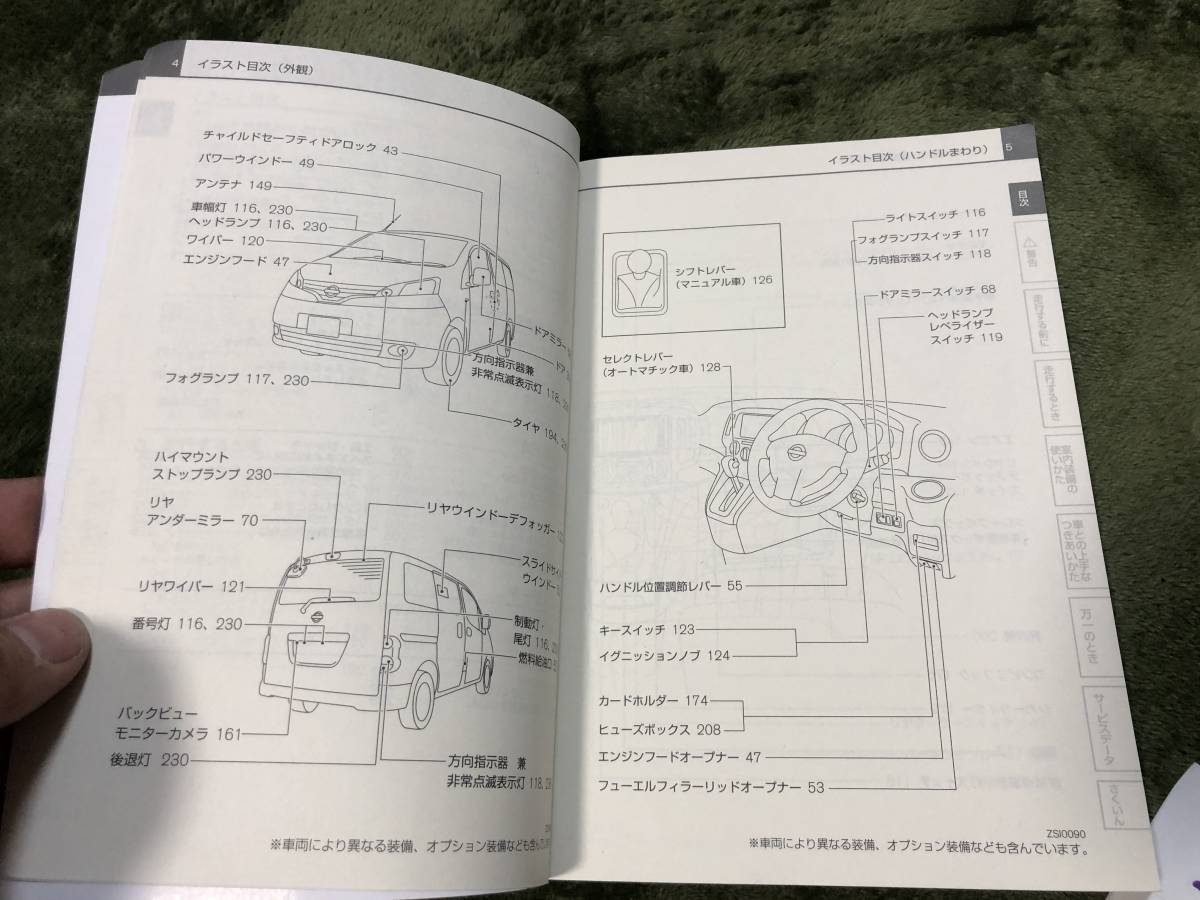 4
イラスト目次（外観）
チャイルドセーフティドアロック 43
パワーウインドー 49
アンテナ 149
車幅灯 116、230
ヘッドランプ 116、230
ワイパー 120
エンジンフード 47
ドアミラー
ドア
方向指示器兼
非常点滅表示灯 118、
フォグランプ 117、230
タイヤ 194、
ハイマウント
ストップランプ 230
リヤ
アンダーミラー 70
リヤウインドーデフォッガー
スライドサイド
ウインドー
リヤワイパー 121
制動灯・
尾灯 116、
番号灯 116、230
燃料給油口
バックビュー
モニターカメラ 161
後退灯 230
方向指示器 兼
非常点滅表示灯 118、
※車両により異なる装備、オプション装備なども含んで
イラスト目次（ハンドルまわり）
5
ライトスイッチ 116
フォグランプスイッチ 117
方向指示器スイッチ 118
シフトレバー
（マニュアル車）126
ドアミラースイッチ 68
ヘッドランプ
レベライザー
スイッチ 119
セレクトレバー
（オートマチック車）128
ハンドル位置調節レバー 55
キースイッチ 123
イグニッションノブ 124
カードホルダー 174
ヒューズボックス 208
エンジンフードオープナー 47
フューエルフィラーリッドオープナー 53
ZSI0090
※車両により異なる装備、オプション装備なども含んでいます。
目次
警告
走行する前に
走行するとき
室内装備の
使いかた
車との上手な
つきあいかた
万一のとき
サービスデータ
さくいん